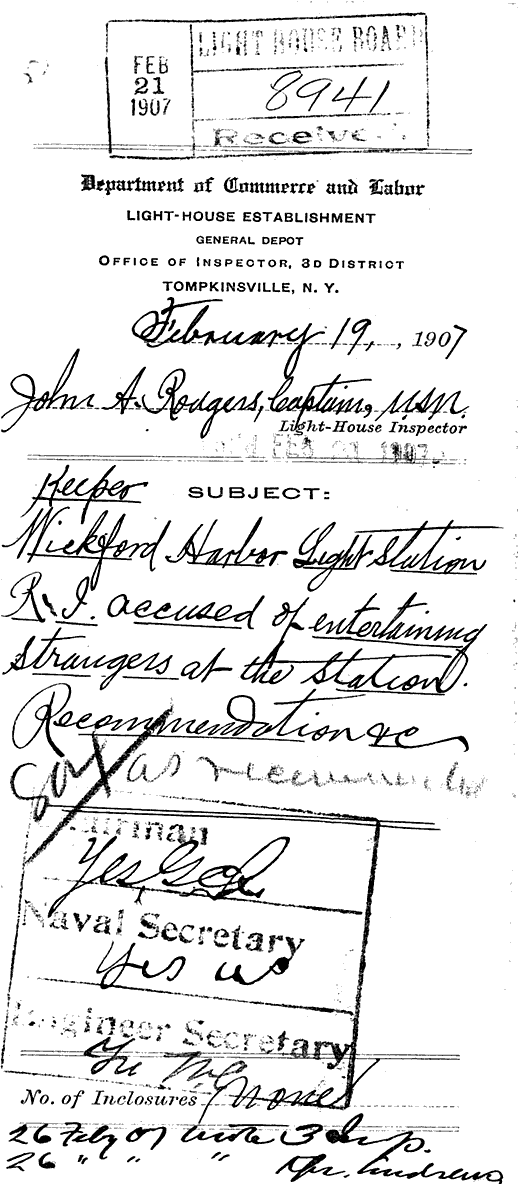 FEB
21
1907
LIGHT HOUSE BOARD
8941
Receive
Department of Commerce and Labor
LIGHT-HOUSE ESTABLISHMENT
GENERAL DEPOT
OFFICE OF INSPECTOR, 3D DISTRICT
TOMPKINSVILLE, N. Y.
February 19, , 1907
John A. Rodgers, Captain, USN.
Light-House Inspector
FEB 21 1907
Keeper SUBJECT:
Wickford Harbor Light Station
R. I. accused of entertaining
strangers at the Station.
Recommendation &c
as recommended
Chairman
Yes
Naval Secretary
Yes
Engineer Secretary
No. of Inclosures none
26 Feby 07 wrote 3 Insp.
26 " " " Mr. Andrews